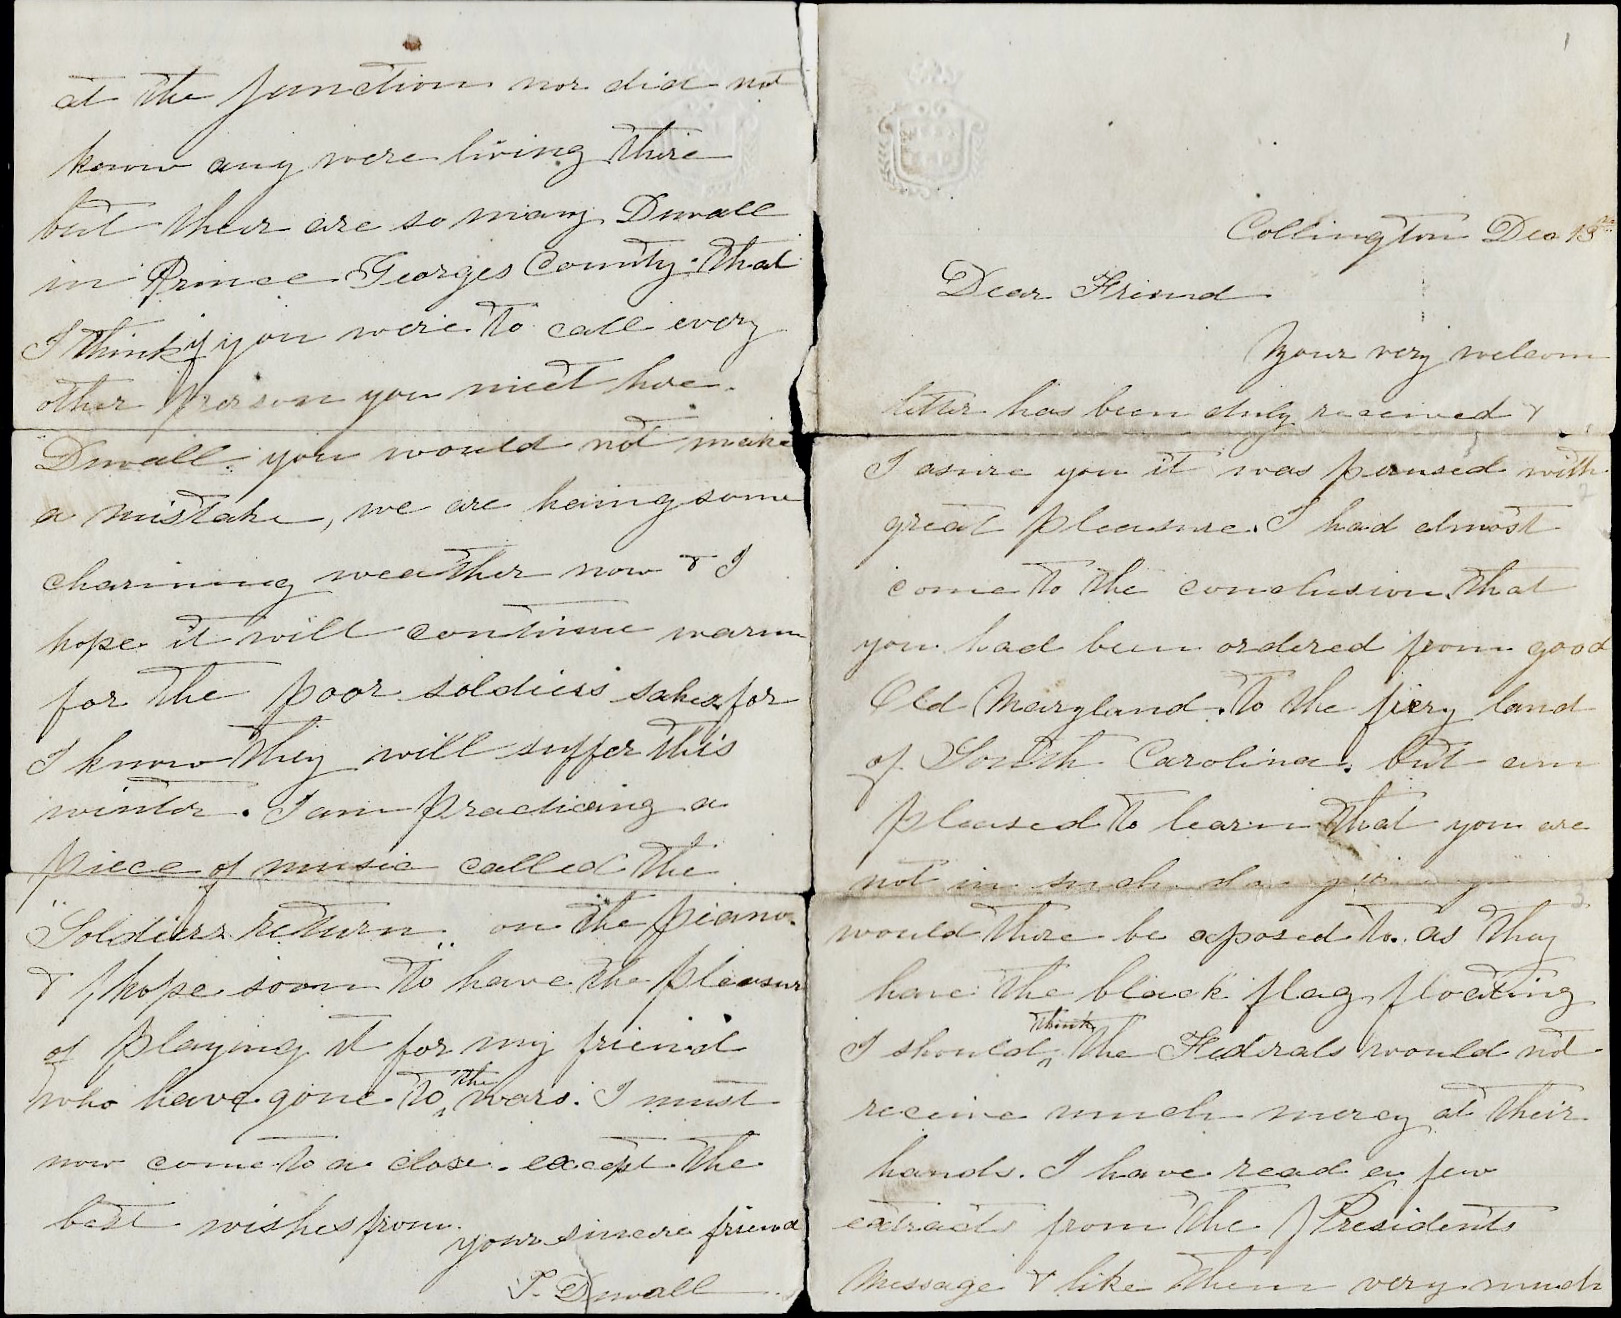 Collington Dec 13th
Dear Friend
Your very welcom
letter has been duly received &
I asure you it was perused with
great pleasure. I had almost
come to the conclusion, that
you had been ordered from good
Old Maryland. to the firery land
of South Carolina. but am
pleased to learn that you are
not in such
would there be exposed to. as they
have the "black" flag floating
I should think the Federals would not
receive much mercy at their
hands. I have read a few
extracts from the Presidents
Message & like them very much
at the junction nor did not
know any were living there
but their are so many Duvall
in Prince Georges County. that
I think if you were to call every
other person you meet here.
Duvall. you would not make
a mistake, we are having some
charming weather now & I
hope it will continue warm
for the poor soldiers sakes for
I know they will suffer this
winter. I am practicing a
piece of music called the
"Soldiers return" on the piano.
& I hope soon to have the pleasur
of playing it for my friend
who have gone to the wars. I must
now come to a close. except the
best wishes from.
your sincere friend
Duvall